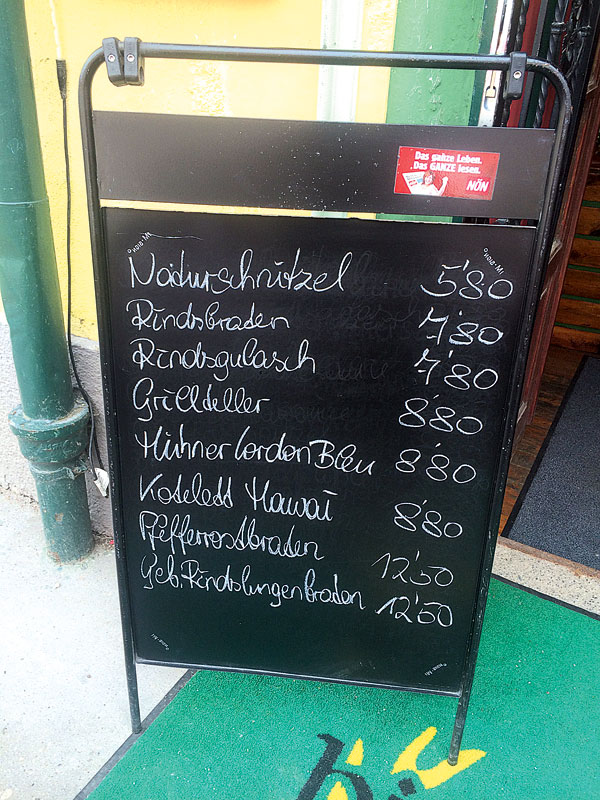 Das ganze Leben.
Das GANZE lesen.
NÖN
Naturschnitzel 5'80
Rindsbraten 7'80
Rindsgulasch 7'80
Grillteller 8'80
Hühner Cordon Bleu 8'80
Kotelett Hawai 8'80
Pfefferrostbraten 12'50
Geb. Rindslungenbraten 12'50